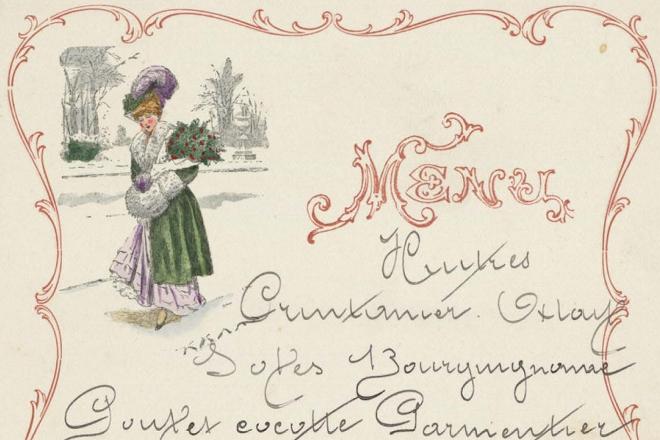 Menu
Huitres
Printanier.
Soles Bourguignonne
Poulet cocotte Parmentier